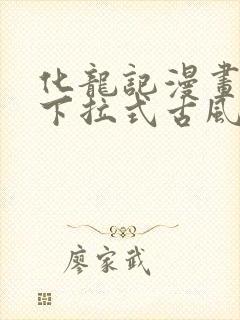 化龍記漫畫
下拉式古風
廖家武